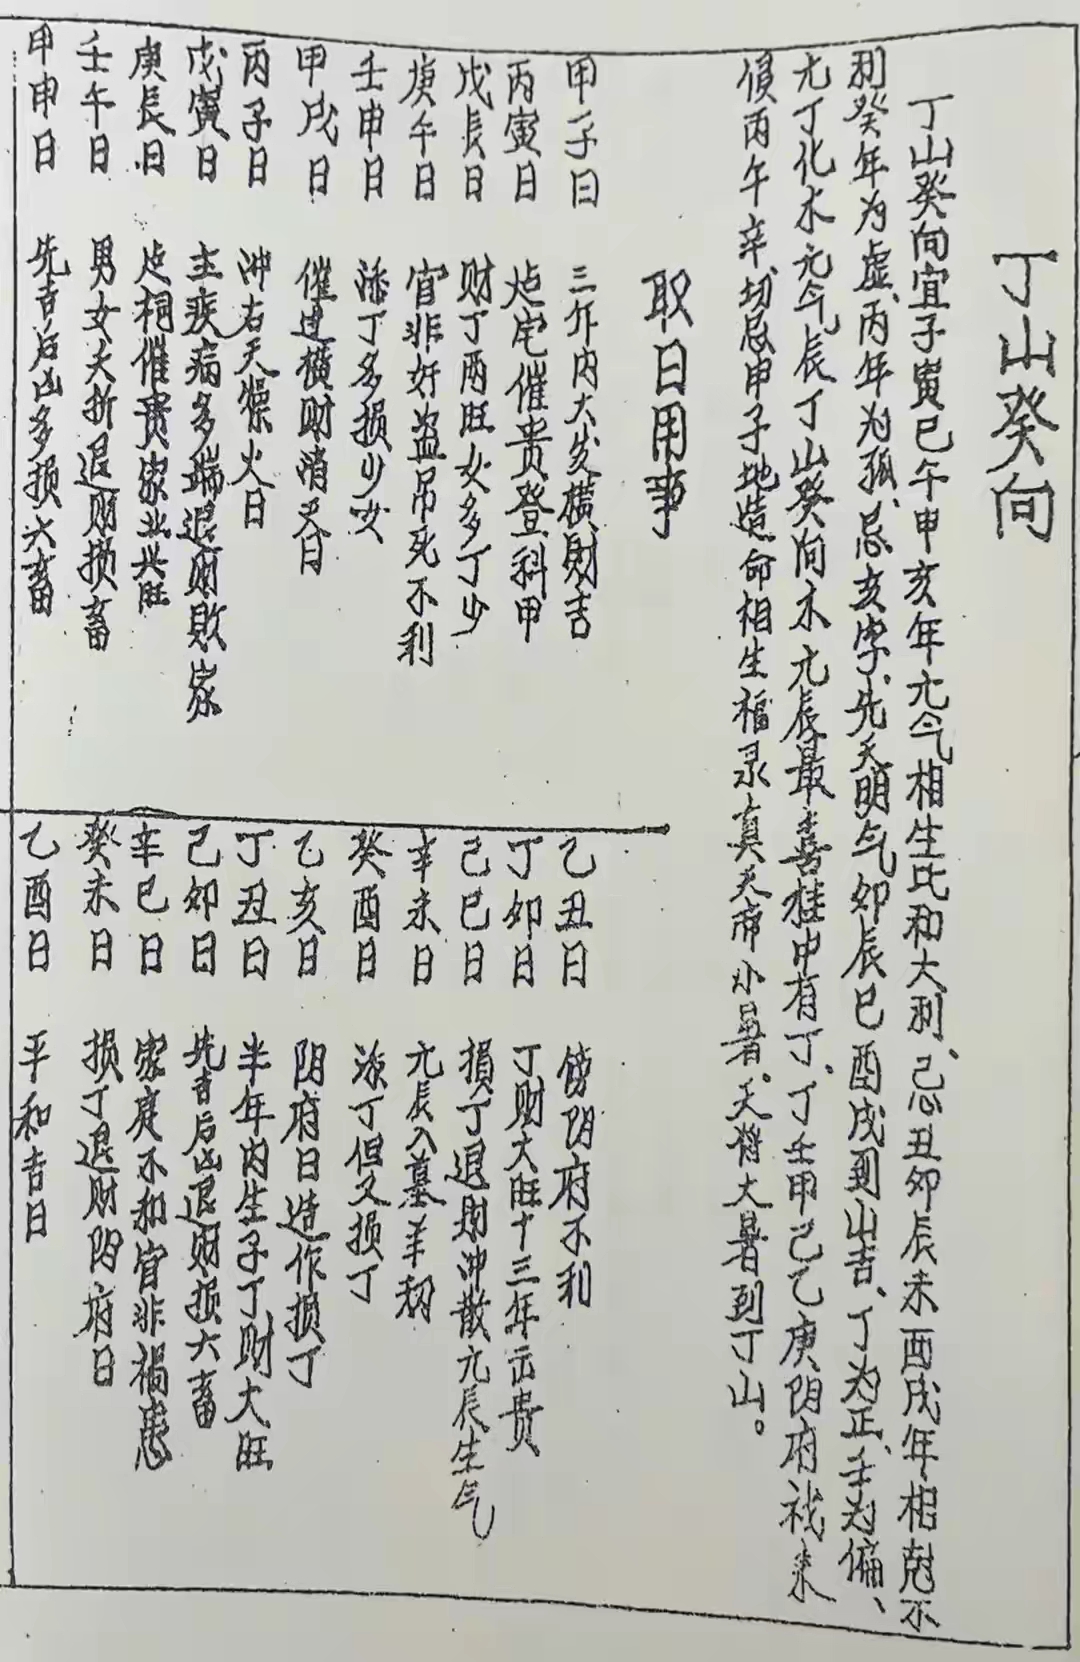 丁山癸向
丁山癸向宜子寅巳午申亥年元气相生比和大利、忌丑卯辰未酉戌年相尅不
利癸年为虚、丙年为孤、忌亥字、先天明气卯辰巳酉戌到山吉、丁为正、壬为偏、
元丁化木元气辰丁山癸向木元辰最喜柱中有丁、丁壬甲己乙庚阴府
候丙午辛切忌甲子地造命相生福录真天帝小暑、天将大暑到丁山。
取日用事
甲子日 三年内大发横财吉
乙丑日 傍阴府不利
丙寅日 造宅催贵登科甲
丁卯日 丁财大旺十三年出贵
戊辰日 财丁两旺女多丁少
己巳日 損丁退财冲散元辰生气
庚午日 官非奸盗吊死不利
辛未日 元辰入墓羊刃
壬申日 添丁多损少女
癸酉日 添丁但又损丁
甲戌日 催进横财消灭日
乙亥日 阴府日造作损丁
丙子日 冲右天燥火日
丁丑日 半年内生子丁财大旺
戊寅日 主疾病多端退财败家
己卯日 先吉后凶退财损六畜
庚辰日 造祠催贵家业兴旺
辛巳日 家庭不和官非禍患
壬午日 男女夭折退财损畜
癸未日 损丁退财阴府日
甲申日 先吉后凶多损六畜
乙酉日 平和吉日